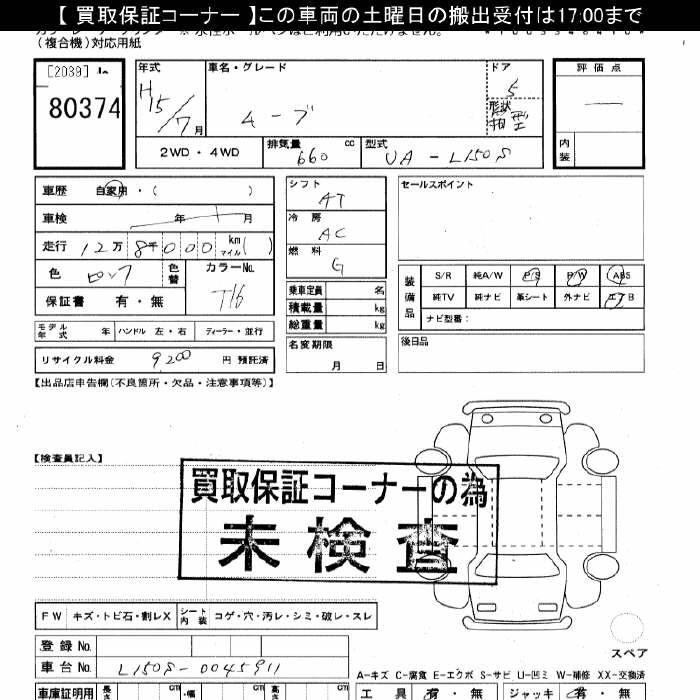 【 買取保証コーナー 】この車両の土曜日の搬出受付は17:00まで
(複合機)対応用紙
[2039]
80374
年式
H15/7月
車名・グレード
ムーブ
ドア
5
形状
箱型
評価点
内装
2WD・4WD
排気量
660 cc
型式
UA-L150S
車歴 自家用・( )
車検 年 月
走行 12万8千000 km マイル ( )
色
色替
カラーNo.
T16
保証書 有・無
シフト
AT
冷房
AC
燃料
G
乗車定員 名
積載量 kg
総重量 kg
名変期限
月 日
セールスポイント
装備品
S/R 純A/W P/S P/W ABS
純TV 純ナビ 革シート 外ナビ エアB
ナビ型番:
後日品
モデル年式 年 ハンドル 左・右 ディーラー・並行
リサイクル料金 9200 円 預託済
【出品店申告欄(不良箇所・欠品・注意事項等)】
【検査員記入】
買取保証コーナーの為
未検査
FW キズ・トビ石・割レX シート内装 コゲ・穴・汚レ・シミ・破レ・スレ
スペア
登録 No.
車台 No. L150S-0045911
A-キズ C-腐食 E-エクボ S-サビ U-凹ミ W-補修 XX-交換済
車庫証明用 長さ cm ・幅 cm 高さ cm
工具 有・無 ジャッキ 有・無